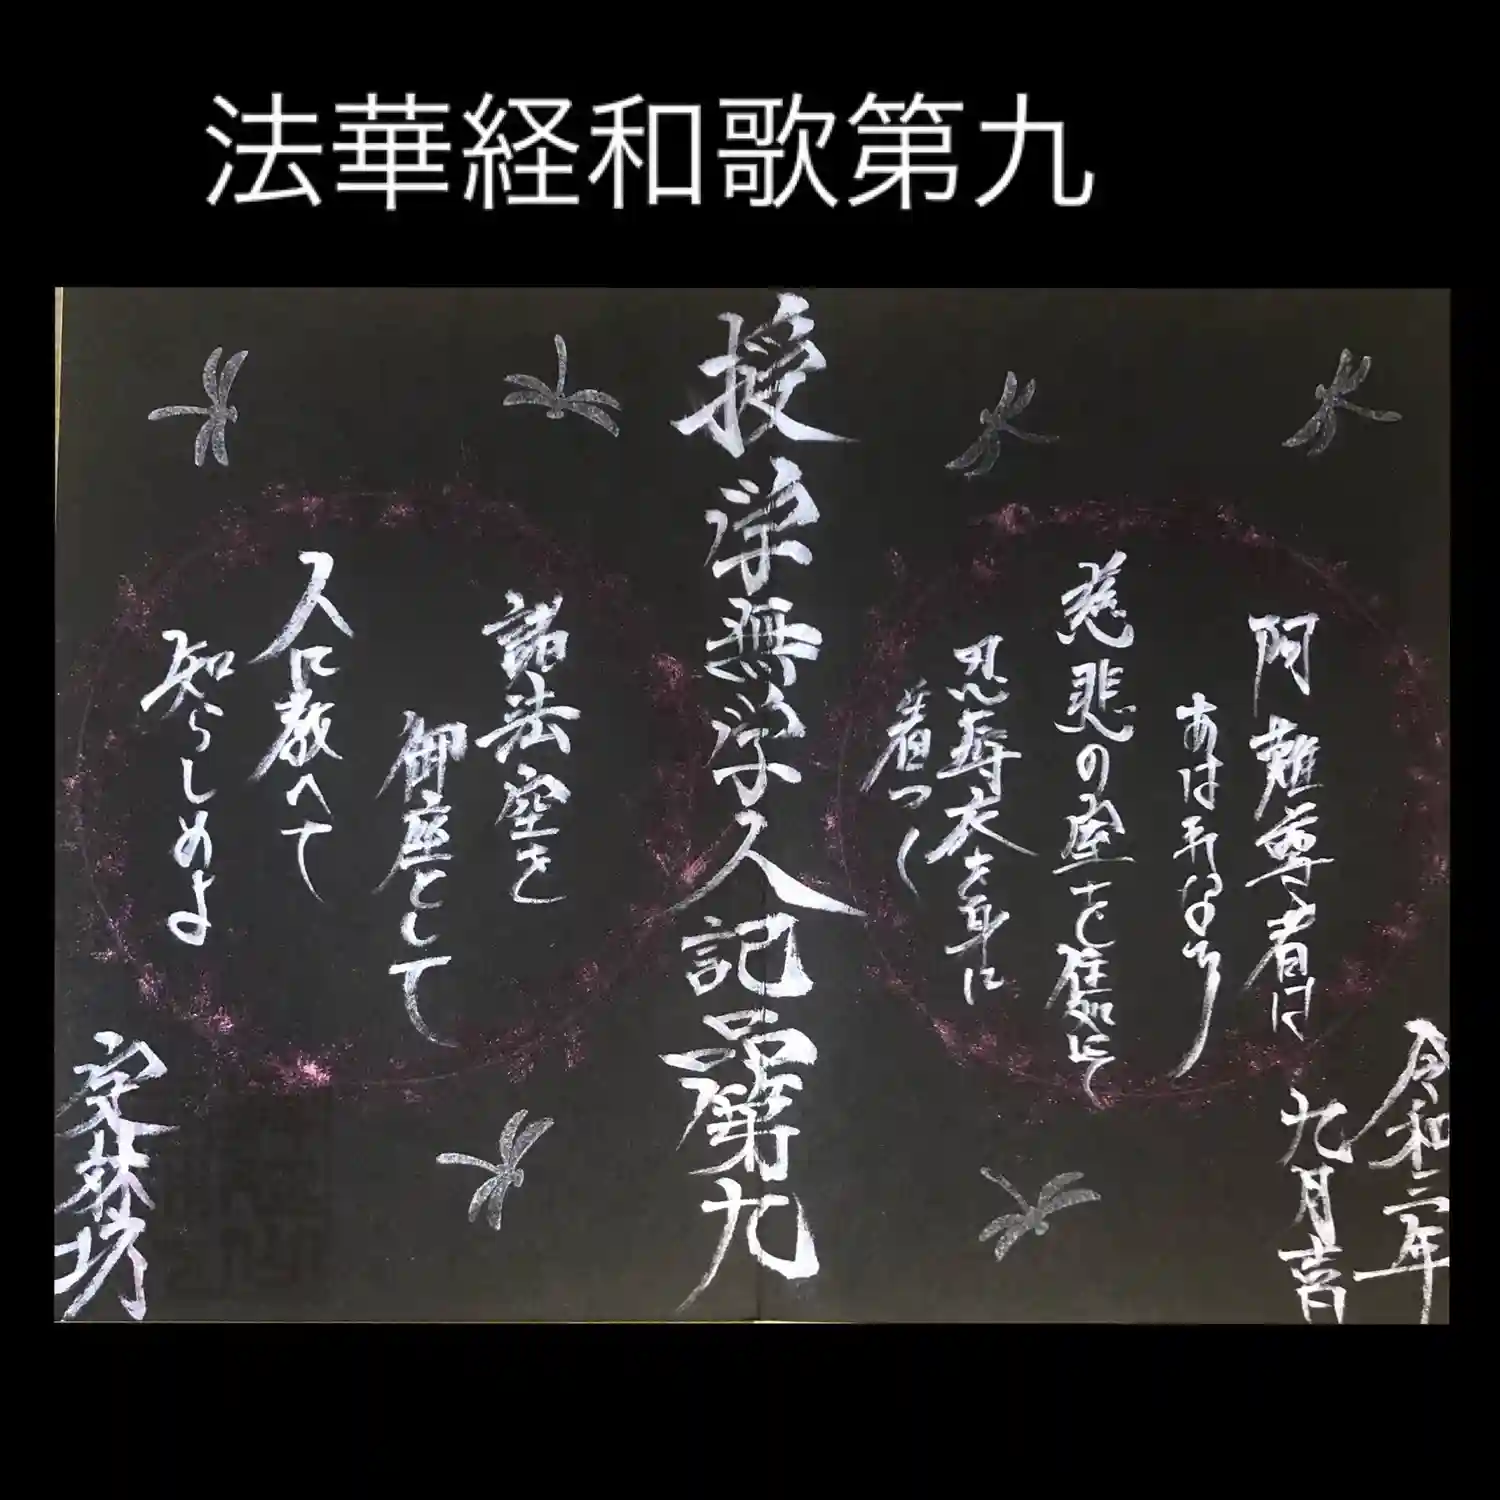 法華経和歌第九
令和二年
九月吉日
阿難尊者は
慈悲の室を住処にて
忍辱衣を身に
着つく
授学無学人記品第九
諸法空を
御座として
人に教へて
知らしめよ
定林坊